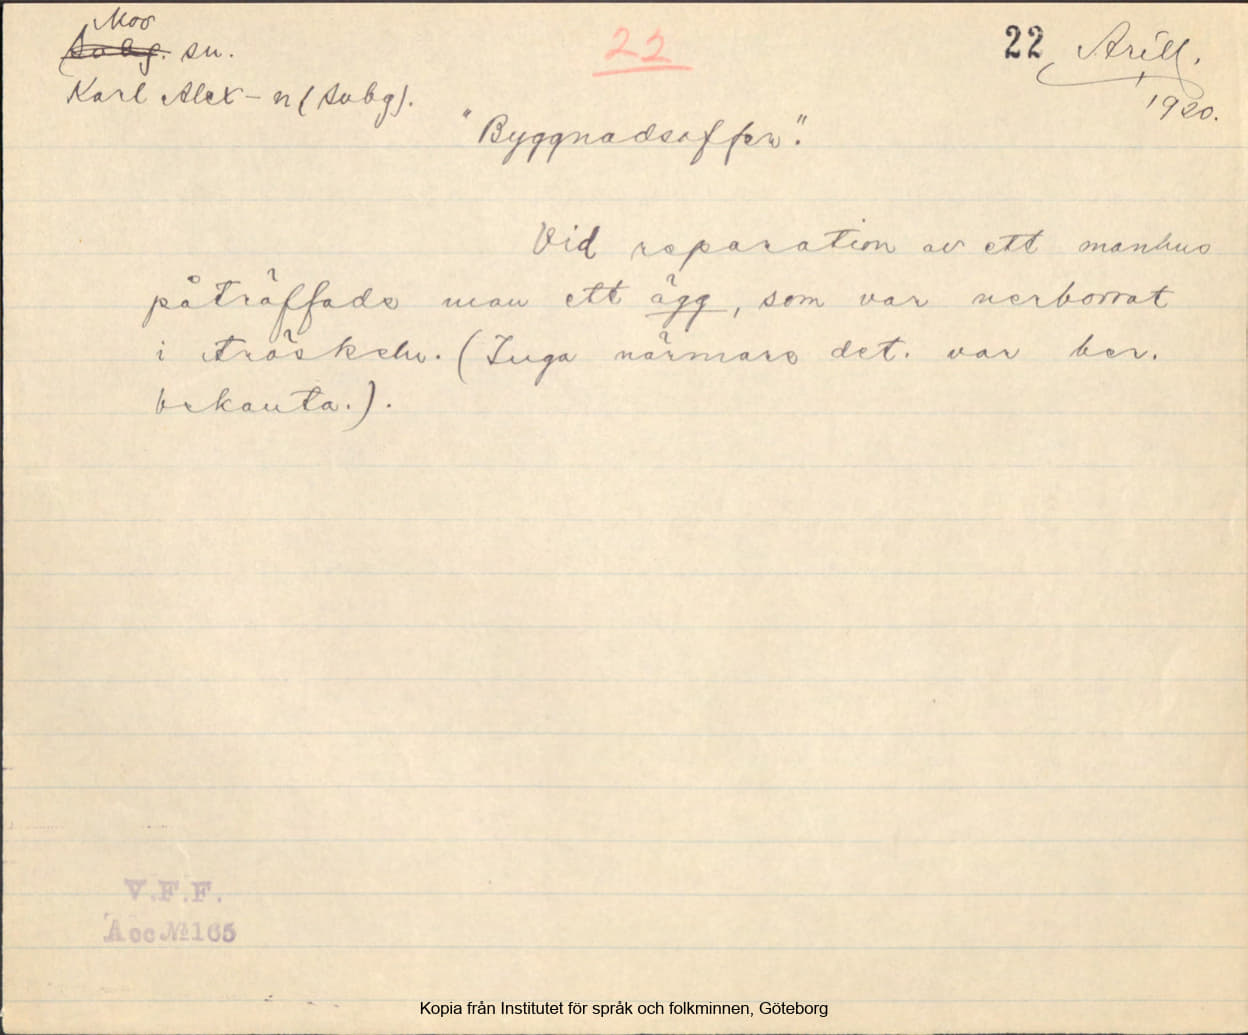 Mos
Solbg. sn.
22
22 Arill.
Karl Alex-n (Solbg).
1920.
"Byggnadsoffer".
Vid reparation av ett manhus
påträffade man ett ägg, som var nerborrat
i tröskeln. (Inga närmare det. var ber.
bekanta.).
V.F.F.
Acc № 165
Kopia från Institutet för språk och folkminnen, Göteborg